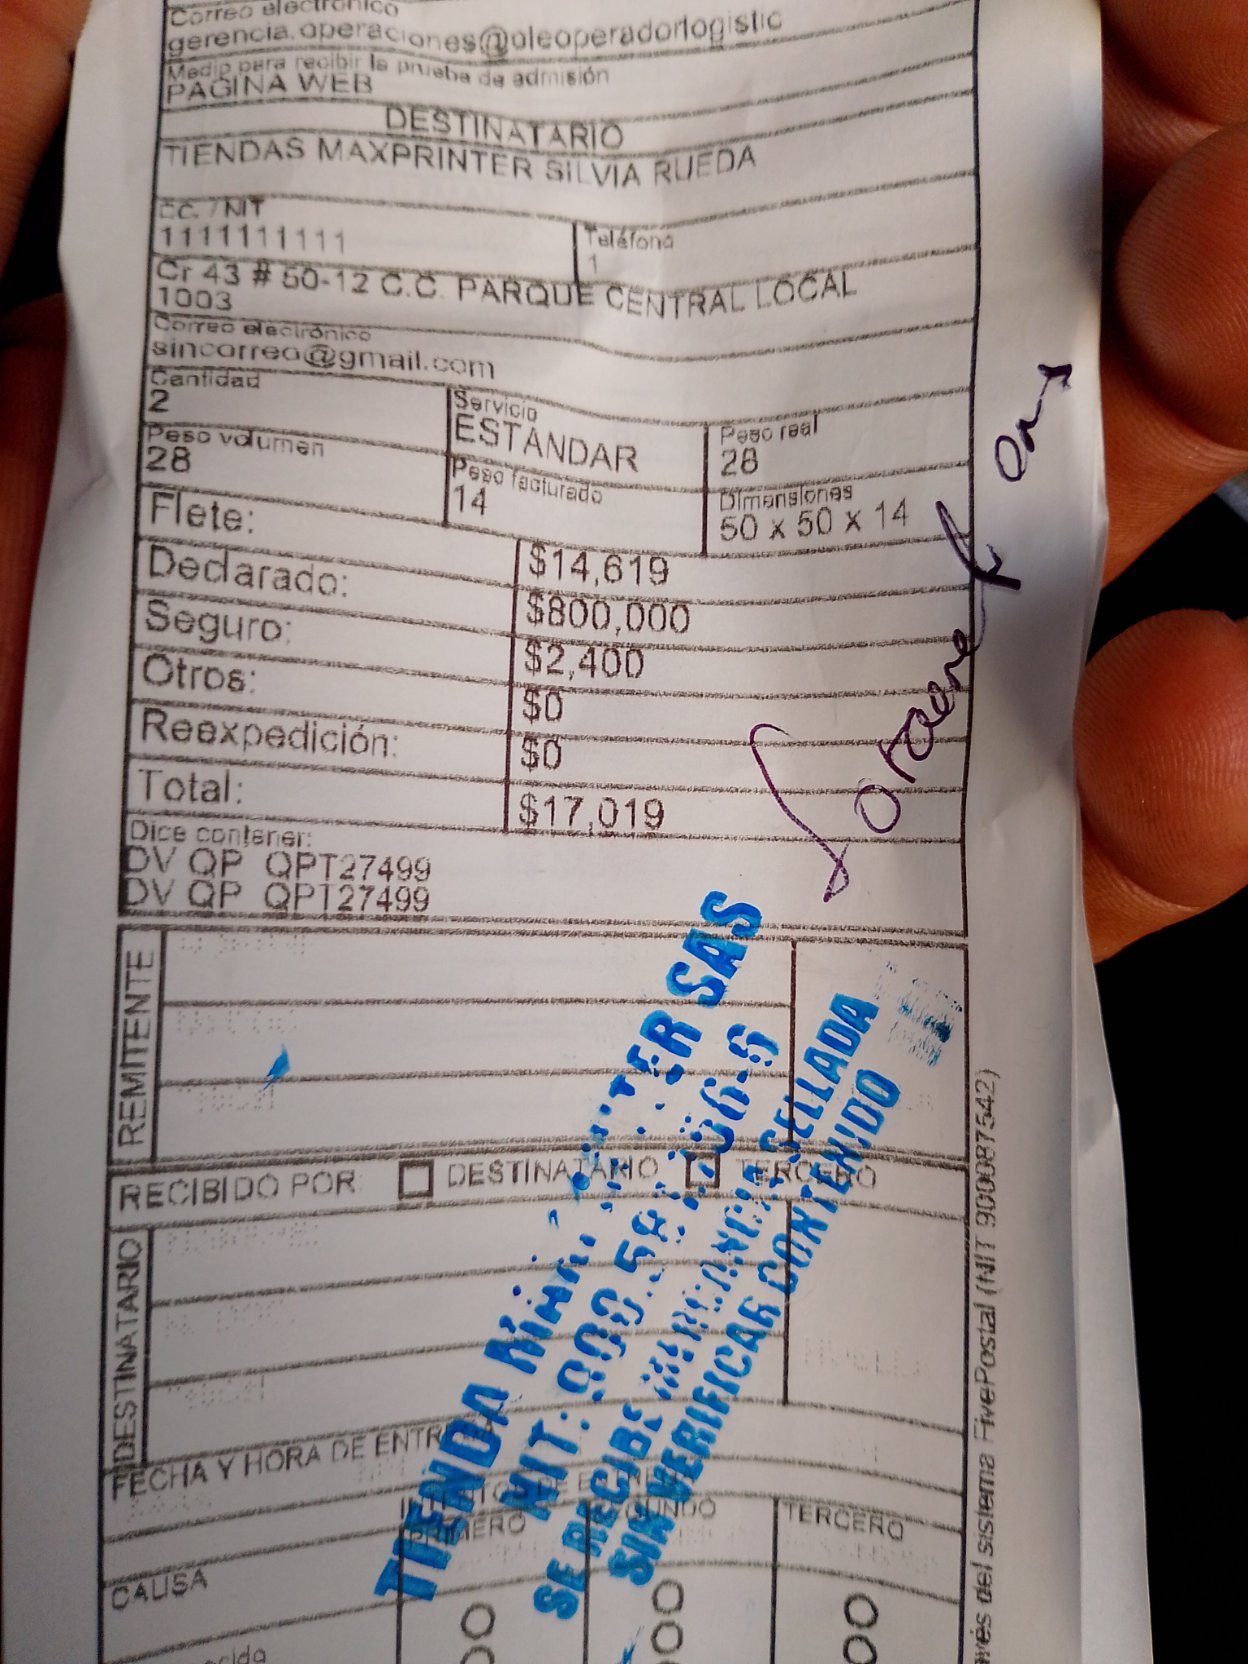 Correo electrónico
gerencia.operaciones@oleoperadorlogistic
Medio para recibir la prueba de admisión
PAGINA WEB
DESTINATARIO
TIENDAS MAXPRINTER SILVIA RUEDA
CC. / NIT
1111111111
Teléfono
1
Cr 43 # 50-12 C.C. PARQUE CENTRAL LOCAL
1003
Correo electrónico
sincorreo@gmail.com
Cantidad
2
Servicio
ESTANDAR
Peso real
28
Peso volumen
28
Peso facturado
14
Dimensiones
50 x 50 x 14
Flete: $14,619
Declarado: $800,000
Seguro: $2,400
Otros: $0
Reexpedición: $0
Total: $17,019
Dice contener:
DV QP QPT27499
DV QP QPT27499
REMITENTE
RECIBIDO POR: DESTINATARIO TERCERO
DESTINATARIO
FECHA Y HORA DE ENTR
PRIMERO
SEGUNDO
TERCERO
CAUSA
TIENDA
TER SAS
NIT: 900.
SE RECIBE MERCANCIA SELLADA
SIN VERIFICAR CONTENIDO
vés del sistema FivePostal (NIT 900087542)